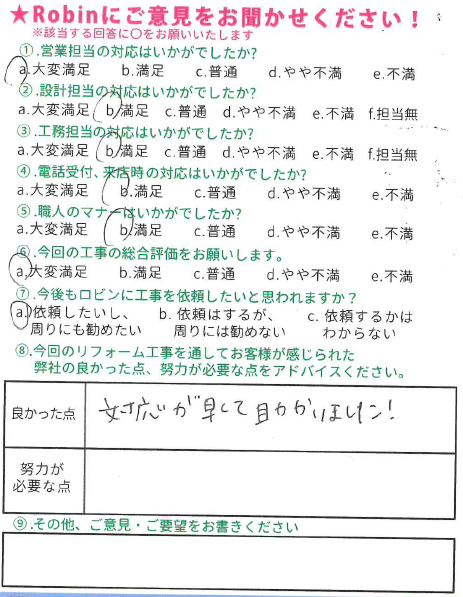 ★Robinにご意見をお聞かせください！
※該当する回答に〇をお願いいたします
①.営業担当の対応はいかがでしたか?
a.大変満足 b.満足 c.普通 d.やや不満 e.不満
②.設計担当の対応はいかがでしたか?
a.大変満足 b.満足 c.普通 d.やや不満 e.不満 f.担当無
③.工務担当の対応はいかがでしたか?
a.大変満足 b.満足 c.普通 d.やや不満 e.不満 f.担当無
④.電話受付、来店時の対応はいかがでしたか?
a.大変満足 b.満足 c.普通 d.やや不満 e.不満
⑤.職人のマナーはいかがでしたか?
a.大変満足 b.満足 c.普通 d.やや不満 e.不満
⑥.今回の工事の総合評価をお願いします。
a.大変満足 b.満足 c.普通 d.やや不満 e.不満
⑦.今後もロビンに工事を依頼したいと思われますか？
a.依頼したいし、 b. 依頼はするが、 c. 依頼するかは
周りにも勧めたい 周りには勧めない わからない
⑧.今回のリフォーム工事を通してお客様が感じられた
弊社の良かった点、努力が必要な点をアドバイスください。
良かった点 対応が早くて助かりました!
努力が
必要な点
⑨.その他、ご意見・ご要望をお書きください